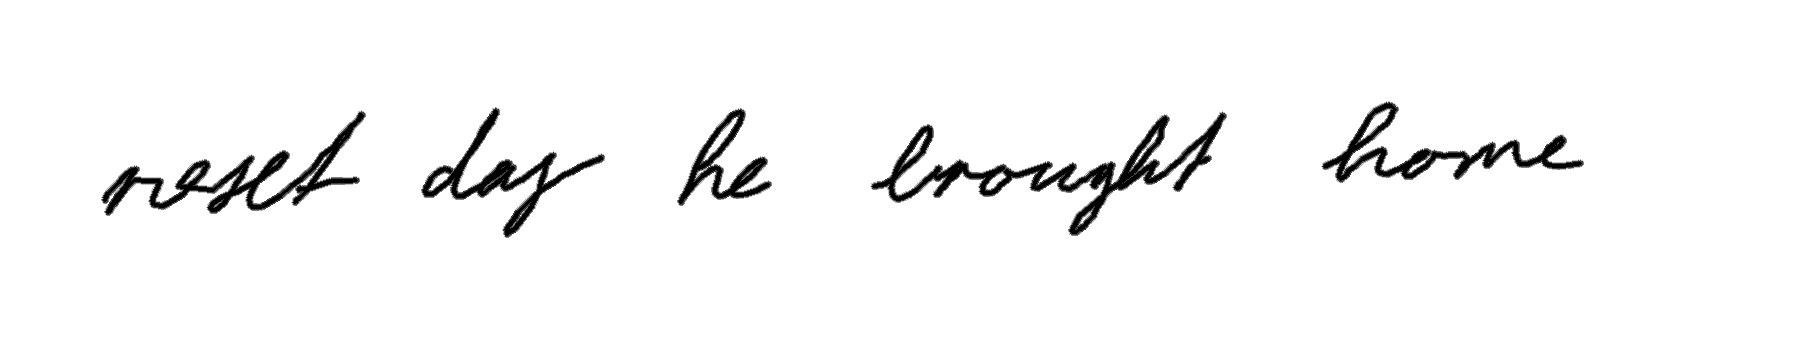 reset day he brought home